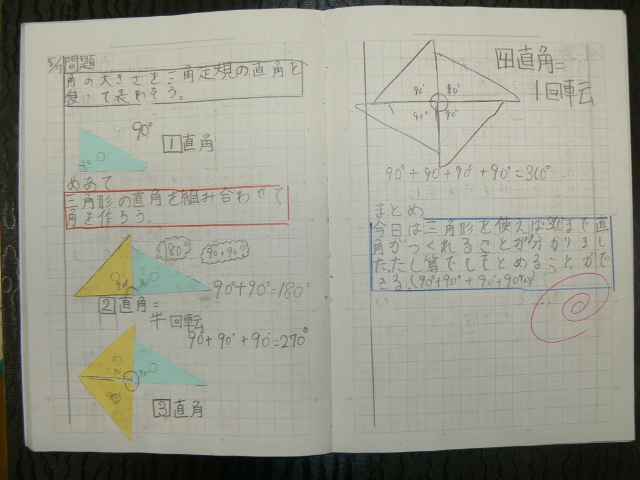 5/7 問題
角の大きさを三角定規の直角を
使って表わそう。
90°
1直角
めあて
三角形の直角を組み合わせて
角を作ろう。
180°
90+90
90°+90°=180°
2直角=
半回転
90+90°+90=270°
3直角
4直角=
1回転
90° 90°
90° 90°
90°+90°+90°+90°=360°
まとめ
今日は三角形を使えば360°まで直
角がつくれることが分かりまし
た。たし算でももとめることがで
きる。(90°+90°+90°+90°など)